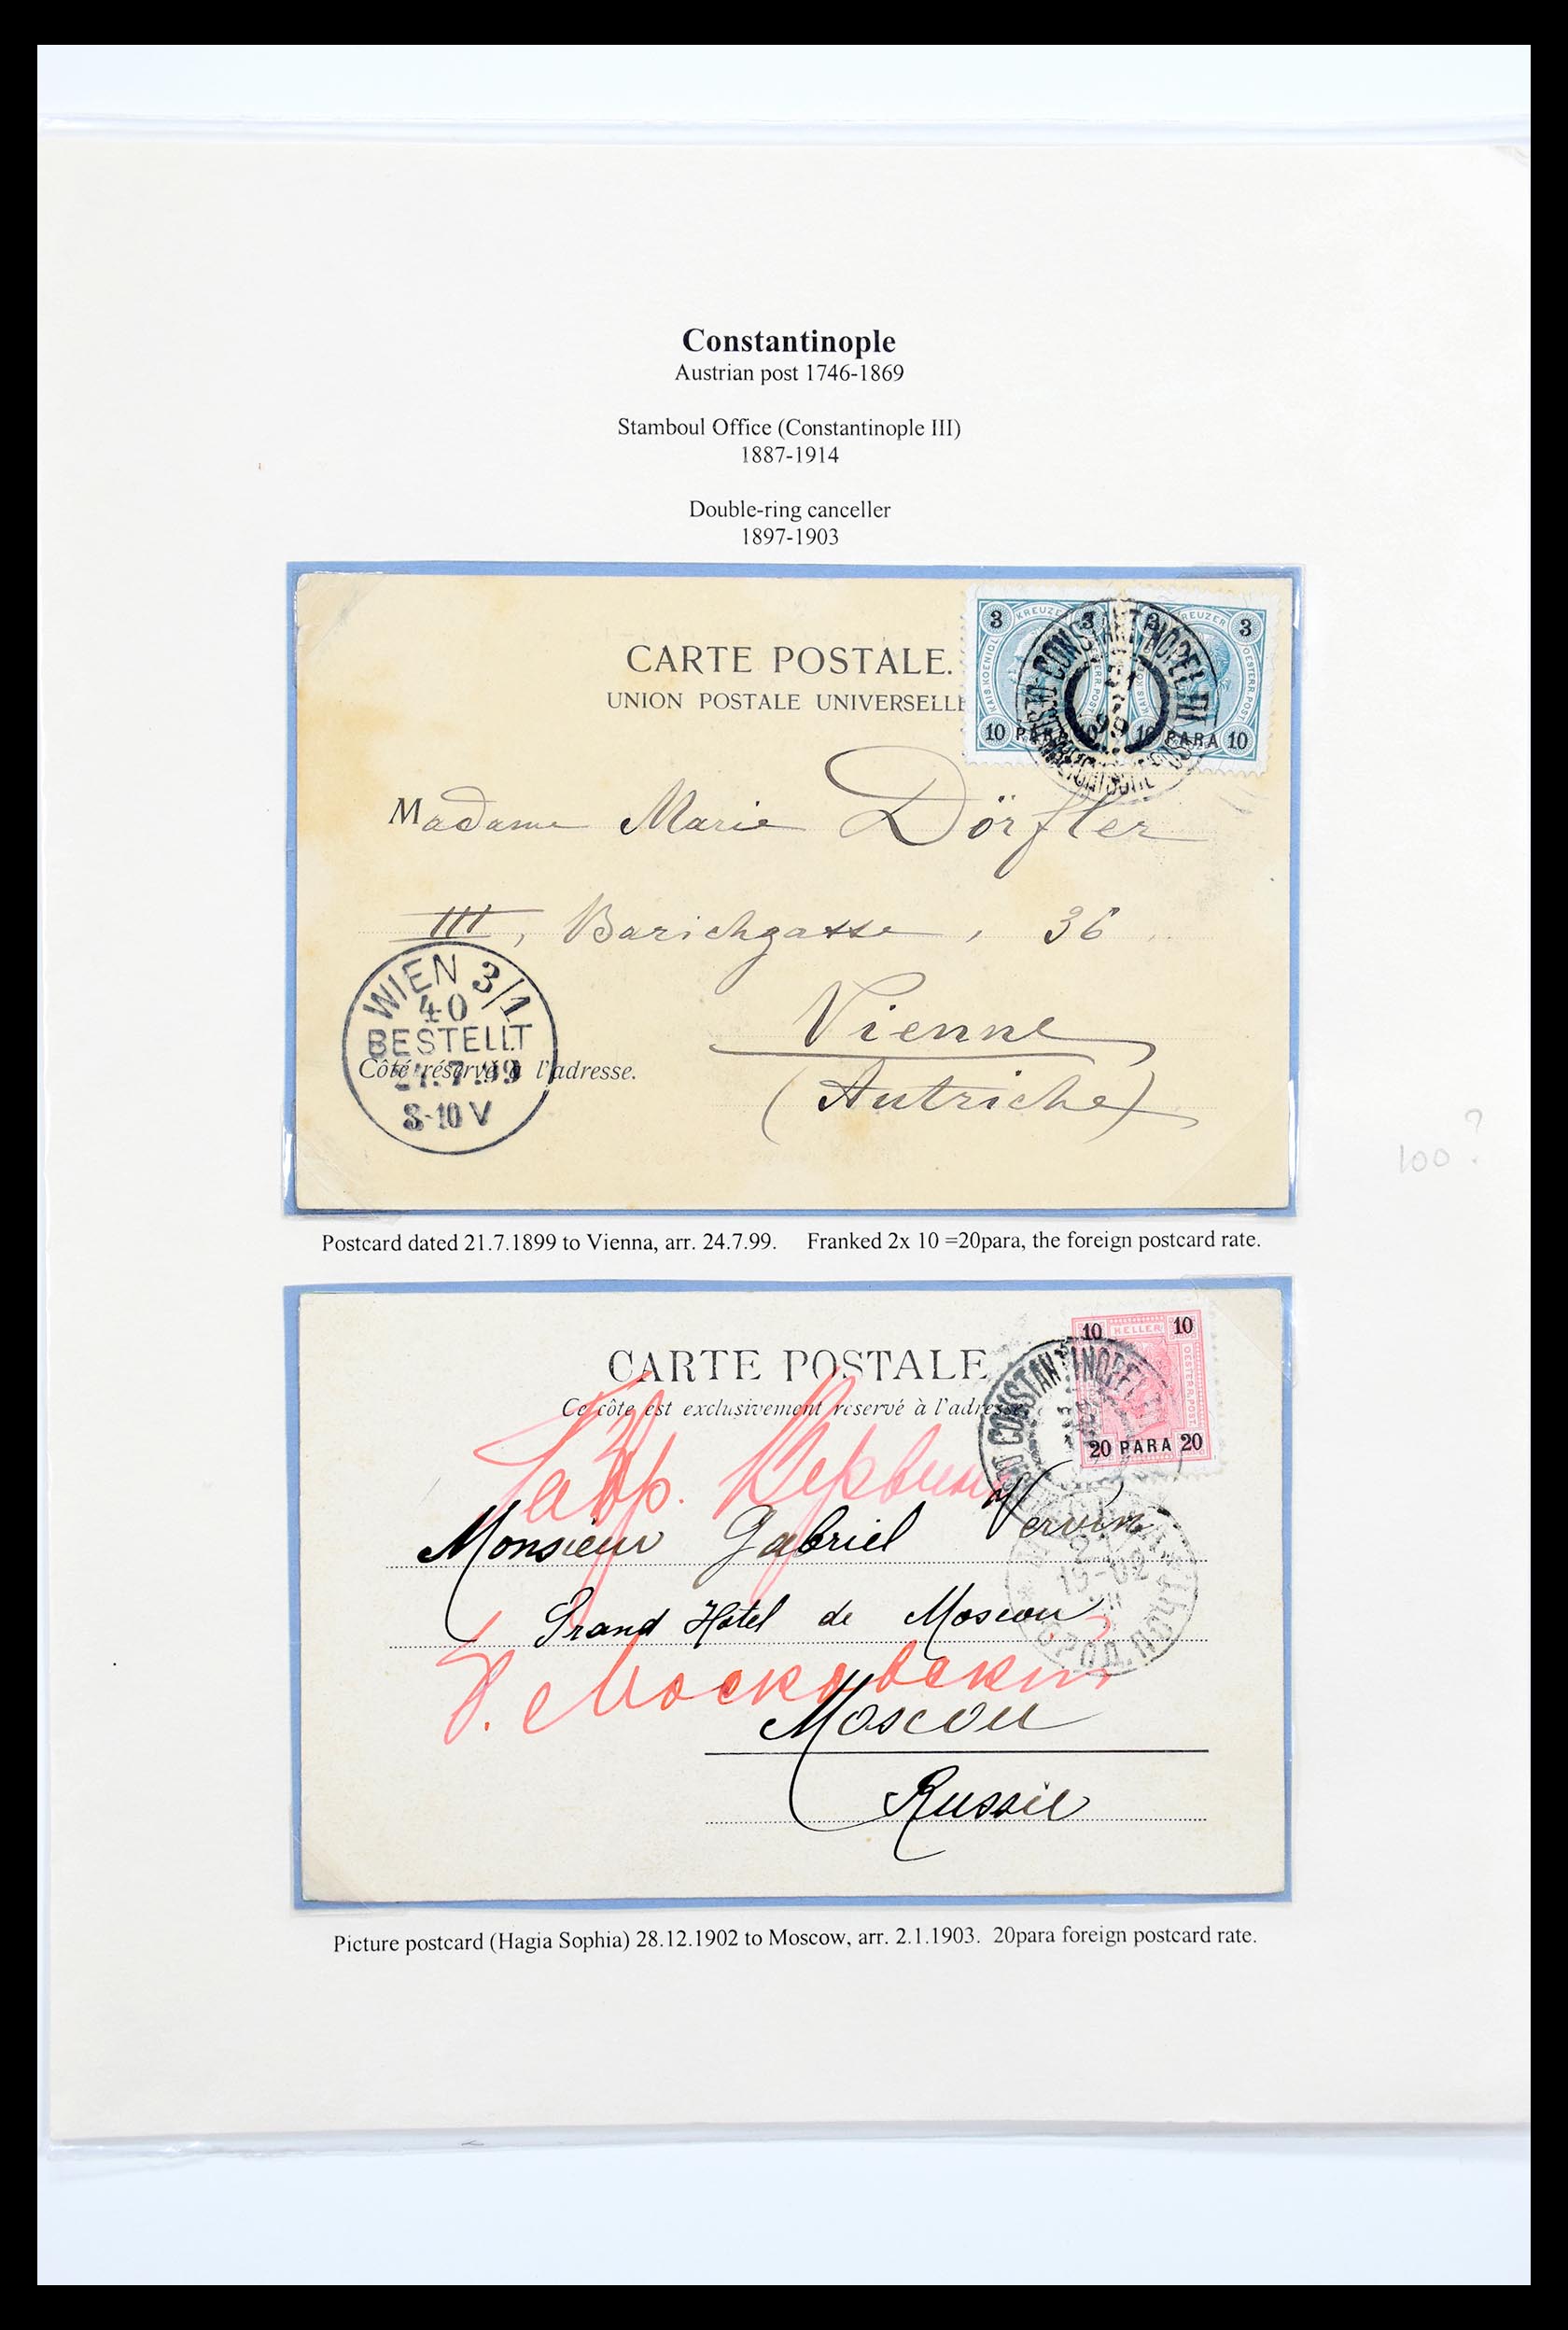 Constantinople
Austrian post 1746-1869
Stamboul Office (Constantinople III)
1887-1914
Double-ring canceller
1897-1903
CARTE POSTALE.
UNION POSTALE UNIVERSELLE
3 KREUZER 3
KAIS. KOENIGL. OESTERR. POST.
10 PARA 10
3 KREUZER 3
KAIS. KOENIGL. OESTERR. POST.
10 PARA 10
CONSTANTINOPEL III
21
7
99
Madame Marie Dörfler
III, Barichgasse, 36
Vienne
(Autriche)
WIEN 3/1
40
BESTELLT
24.7.99
8-10 V
Côté réservé à l'adresse.
100?
Postcard dated 21.7.1899 to Vienna, arr. 24.7.99. Franked 2x 10 =20para, the foreign postcard rate.
10 HELLER 10
OESTERR. POST.
20 PARA 20
CONSTANTINOPEL
CARTE POSTALE
Ce côte est exclusivement réservé à l'adresse
Габр. Вервин
Monsieur Gabriel Vervin
Grand Hotel de Moscou
Б. Московский
Moscou
Russie
Picture postcard (Hagia Sophia) 28.12.1902 to Moscow, arr. 2.1.1903. 20para foreign postcard rate.